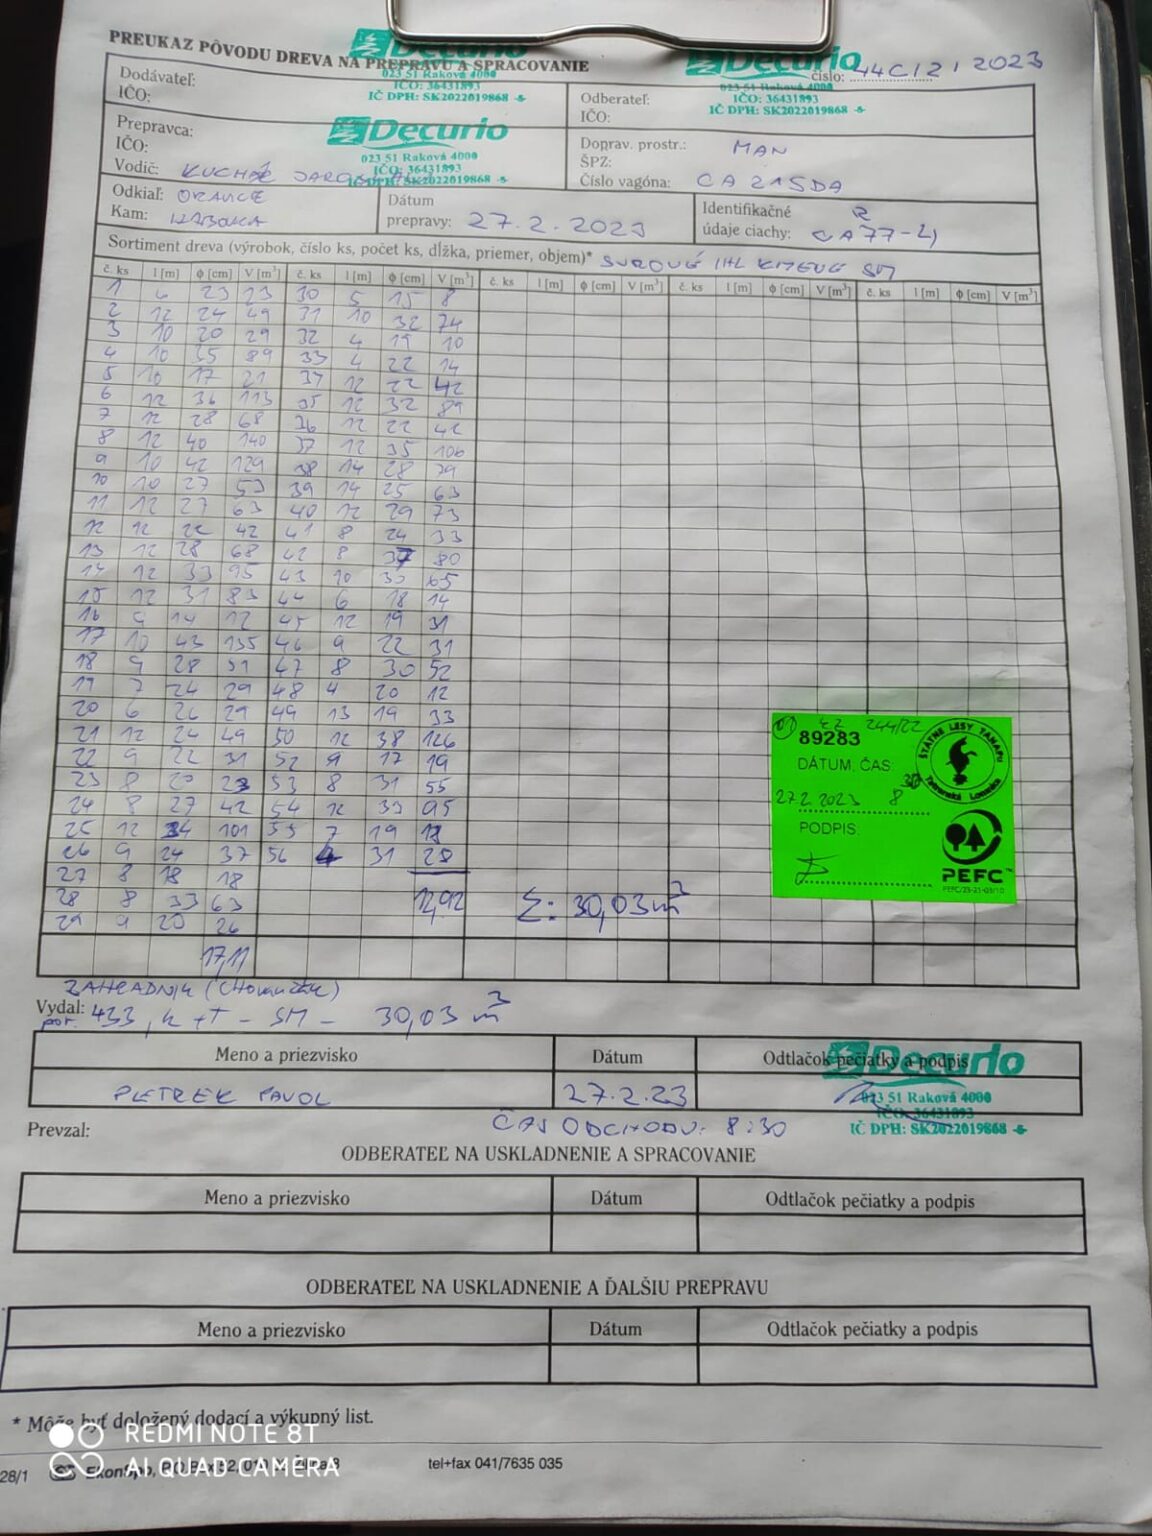 PREUKAZ PÔVODU DREVA NA PREPRAVU A SPRACOVANIE
Decurio
023 51 Raková 4000
IČO: 36431893
IČ DPH: SK2022019868 -8-
Decurio
023 51 Raková 4000
IČO: 36431893
IČ DPH: SK2022019868 -8-
číslo: 44C/2/2023
Dodávateľ:
IČO:
Odberateľ:
IČO:
Prepravca:
IČO:
Decurio
023 51 Raková 4000
IČO: 36431893
IČ DPH: SK2022019868 -8-
Vodič: KUCHÁR
Doprav. prostr.: MAN
ŠPZ:
Číslo vagóna: CA215DA
Odkiaľ: ORAVICE
Kam:
Dátum
prepravy: 27.2.2023
Identifikačné
údaje ciachy: CA77-4
Sortiment dreva (výrobok, číslo ks, počet ks, dĺžka, priemer, objem)* SUROVÉ IHL KMENE SM
č. ks l [m] ϕ [cm] V [m³] č. ks l [m] ϕ [cm] V [m³] č. ks l [m] ϕ [cm] V [m³] č. ks l [m] ϕ [cm] V [m³] č. ks l [m] ϕ [cm] V [m³]
1 6 23 23 30 5 15 8
2 12 24 49 31 10 32 74
3 10 20 29 32 4 19 10
4 10 35 89 33 4 22 14
5 10 17 21 34 12 22 42
6 12 36 113 35 12 32 89
7 12 28 68 36 12 22 42
8 12 40 140 37 12 35 106
9 10 42 129 38 14 28 79
10 10 27 53 39 14 25 63
11 12 27 63 40 12 29 73
12 12 22 42 41 8 24 33
13 12 28 68 42 8 37 80
14 12 33 95 43 10 30 65
15 12 31 83 44 6 18 14
16 9 14 12 45 12 19 31
17 10 43 135 46 9 22 31
18 9 28 51 47 8 30 52
19 7 24 29 48 4 20 12
20 6 26 29 49 13 19 33
21 12 24 49 50 12 38 126
22 9 22 31 52 9 17 19
23 8 20 23 53 8 31 55
24 8 27 42 54 12 33 95
25 12 34 101 55 7 19 18
26 9 24 37 56 4 31 28
27 8 18 18
28 8 33 63 12,92 Σ: 30,03 m³
29 9 20 26
17,11
89283
244/22
DÁTUM, ČAS:
27.2.2023 8 30
PODPIS:
ŠTÁTNE LESY TANAPU
Tatranská Lomnica
PEFC™
PEFC/23-21-03/10
ZÁHRADNÍK
Vydal: por. 433, k + T - SM - 30,03 m³
Meno a priezvisko Dátum Odtlačok pečiatky a podpis
PETREK PAVOL 27.2.23
Decurio
023 51 Raková 4000
IČO: 36431893
IČ DPH: SK2022019868 -8-
Prevzal:
ČAS ODCHODU: 8:30
ODBERATEĽ NA USKLADNENIE A SPRACOVANIE
Meno a priezvisko Dátum Odtlačok pečiatky a podpis
ODBERATEĽ NA USKLADNENIE A ĎALŠIU PREPRAVU
Meno a priezvisko Dátum Odtlačok pečiatky a podpis
* Môže byť doložený dodací a výkupný list.
REDMI NOTE 8T
AI QUAD CAMERA
28/1
tel+fax 041/7635 035